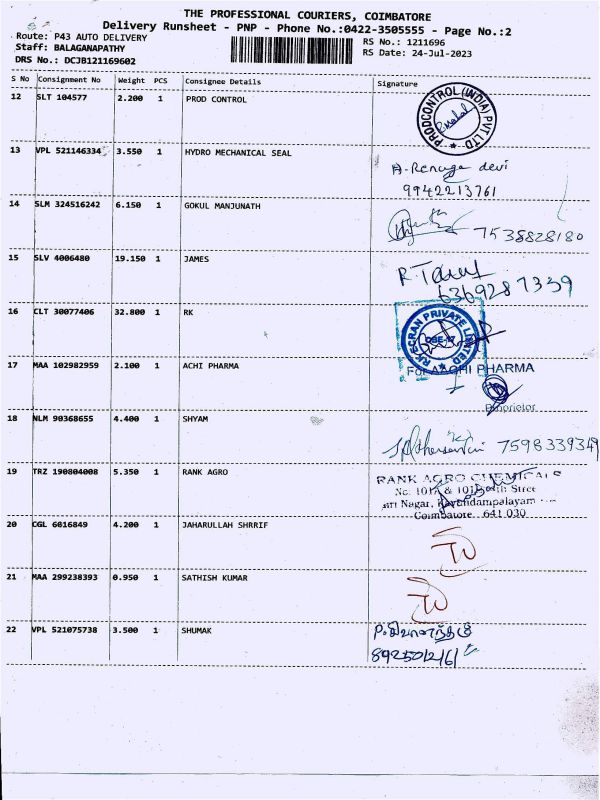 THE PROFESSIONAL COURIERS, COIMBATORE
Delivery Runsheet - PNP - Phone No.:0422-3505555 - Page No.:2
Route: P43 AUTO DELIVERY
Staff: BALAGANAPATHY
DRS No.: DCJB121169602
RS No.: 1211696
RS Date: 24-Jul-2023
S No Consignment No Weight PCS Consignee Details Signature
12 SLT 104577 2.200 1 PROD CONTROL
PRODCONTROL (INDIA) PVT LTD
13 VPL 521146334 3.550 1 HYDRO MECHANICAL SEAL
A. Renuga devi
9942213761
14 SLM 324516242 6.150 1 GOKUL MANJUNATH
7538828180
15 SLV 4006480 19.150 1 JAMES
6369287339
16 CLT 30077406 32.800 1 RK
PRIVATE LIMITED
17 MAA 102982959 2.100 1 ACHI PHARMA
For AACHI PHARMA
Proprietor
18 NLM 90368655 4.400 1 SHYAM
7598339349
19 TRZ 190804008 5.350 1 RANK AGRO
RANK AGRO CHEMICALS
Nagar, Kavundampalayam
Coimbatore. 641 030
20 CGL 6016849 4.200 1 JAHARULLAH SHRRIF
21 MAA 299238393 0.950 1 SATHISH KUMAR
22 VPL 521075738 3.500 1 SHUMAK